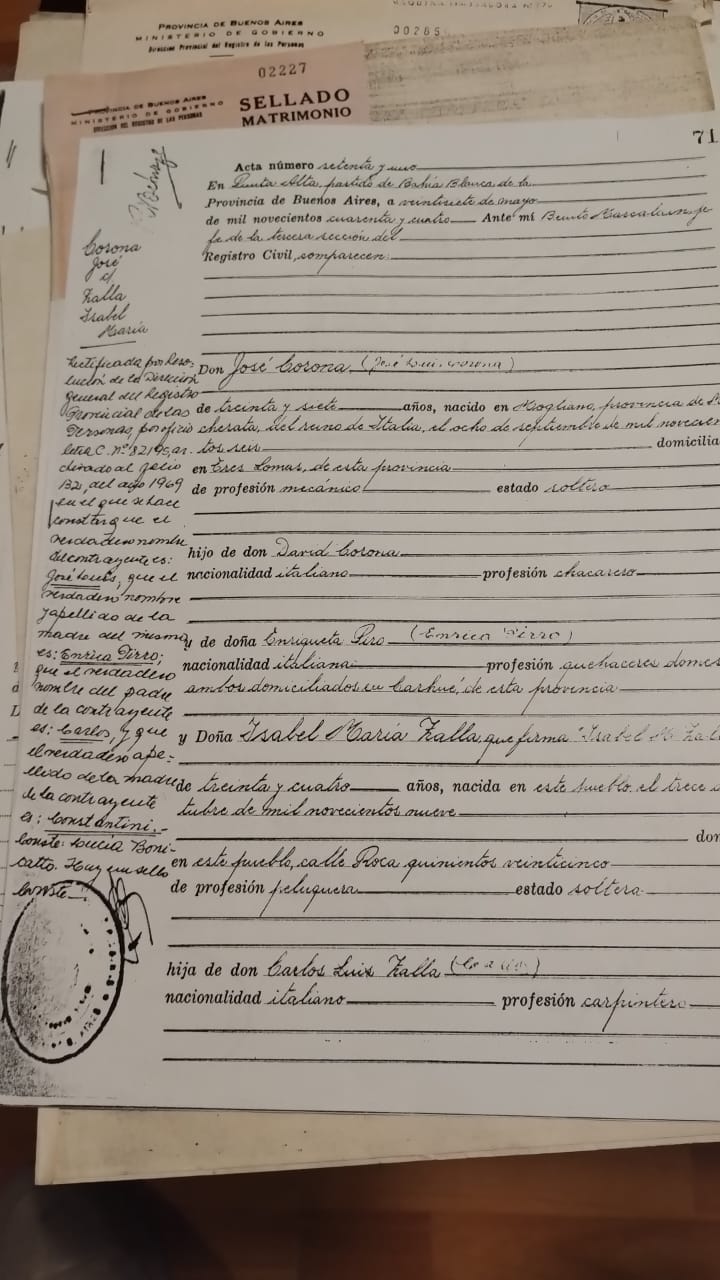 PROVINCIA DE BUENOS AIRES
MINISTERIO DE GOBIERNO
Dirección Provincial del Registro de las Personas
00285
02227
PROVINCIA DE BUENOS AIRES
MINISTERIO DE GOBIERNO
DIRECCION DEL REGISTRO DE LAS PERSONAS
SELLADO
MATRIMONIO
71
Acta número setenta y uno
En Punta Alta, partido de Bahía Blanca de la
Provincia de Buenos Aires, a veintisiete de mayo
de mil novecientos cuarenta y cuatro Ante mí Benito
fe de la tercera sección del
Registro Civil, comparecen:
Corona
José
c/
Zalla
Isabel
María
Don José Corona (José Luis Corona)
de treinta y siete años, nacido en Mogliano, provincia de
cherata, del reino de Italia, el ocho de septiembre de mil novecien
tos seis domicilia
en Tres Lomas, de esta provincia
de profesión mecánico estado soltero
hijo de don David Corona
nacionalidad italiano profesión chacarero
y de doña Enriqueta Piro (Enrica Pirro)
nacionalidad italiana profesión quehaceres domés
ambos domiciliados en Carhué, de esta provincia
y Doña Isabel María Zalla, que firma "Isabel M. Zall
de treinta y cuatro años, nacida en este pueblo el trece
tubre de mil novecientos nueve
don
en este pueblo, calle Roca quinientos veinticinco
de profesión peluquera estado soltera
hija de don Carlos Luis Zalla
nacionalidad italiano profesión carpintero
Rectificada por Reso-
lución de la Dirección
general del Registro
Provincial de las
Personas, por oficio
letra C. Nº 82190, ar-
chivado al folio
132, del año 1969
en el que se hace
constar que el
verdadero nombre
del contrayente es:
José Luis, que el
verdadero nombre
y apellido de la
madre del mismo
es: Enrica Pirro;
que el verdadero
nombre del padre
de la contrayente
es: Carlos, y que
el verdadero ape-
llido de la madre
de la contrayente
es: Constantini.-
Conste: Lucía Boni-
catto. Hay un sello
Conste.